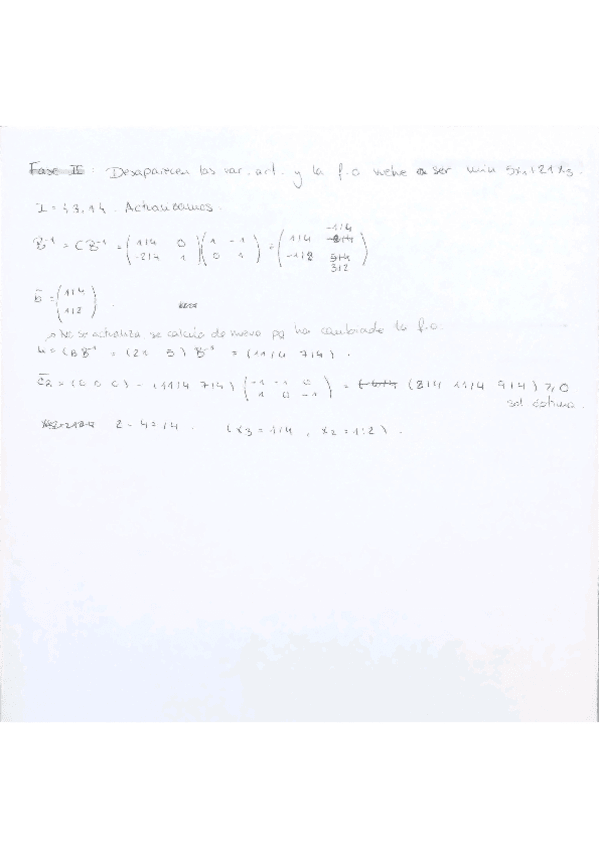 Fase II : Desaparecen las var. art. y la f.o vuelve a ser min 5x1+21x3.
I = {3,1}. Actualizamos.
B⁻¹ = CB⁻¹ = (1/4 0 / -2/4 1)(1 -1 / 0 1) = (1/4 -1/4 / -1/2 3/2)
b̄ = (1/4 / 1/2).
→ No se actualiza, se calcula de nuevo pq ha cambiado la f.o.
= CB B⁻¹ = (21 5) B⁻¹ = (11/4 7/4).
C̄2 = (0 0 0) - (11/4 7/4) (-1 -1 0 / 1 0 -1) = (8/4 11/4 9/4) ≥ 0
sol óptima.
(x3 = 1/4 , x2 = 1/2).